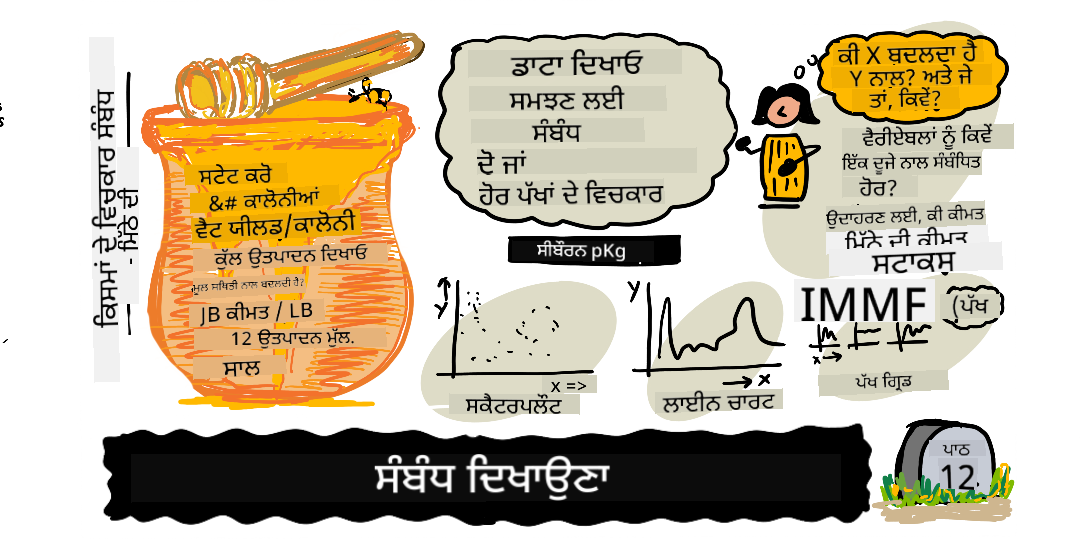 ਕਿਸਮਾਂ ਦੇ ਵਿਚਕਾਰ ਸੰਬੰਧ
- ਮਿੰਨੇ ਦੀ
ਸਟੇਟ ਕਰੋ
&# ਕਾਲੋਨੀਆਂ
ਵੈਟ ਯੀਲਡ/ਕਾਲੋਨੀ
ਕੁੱਲ ਉਤਪਾਦਨ ਦਿਖਾਓ
ਮੂਲ ਸਥਿਤੀ ਨਾਲ ਬਦਲਦੀ ਹੈ?
JB ਕੀਮਤ / LB
12 ਉਤਪਾਦਨ ਮੁੱਲ.
ਸਾਲ
ਡਾਟਾ ਦਿਖਾਓ
ਸਮਝਣ ਲਈ
ਸੰਬੰਧ
ਦੋ ਜਾਂ
ਹੋਰ ਪੱਖਾਂ ਦੇ ਵਿਚਕਾਰ
ਸੀਬੌਰਨ pKg
ਕੀ X ਬਦਲਦਾ ਹੈ
Y ਨਾਲ? ਅਤੇ ਜੇ
ਤਾਂ, ਕਿਵੇਂ?
ਵੈਰੀਏਬਲਾਂ ਨੂੰ ਕਿਵੇਂ
ਇੱਕ ਦੂਜੇ ਨਾਲ ਸੰਬੰਧਿਤ
ਹੋਰ?
ਉਦਾਹਰਣ ਲਈ, ਕੀ ਕੀਮਤ
ਮਿੰਨੇ ਦੀ ਕੀਮਤ
ਸਟਾਕਸ
Y
x =>
ਸਕੈਟਰਪਲੌਟ
Y
x
ਲਾਈਨ ਚਾਰਟ
IMMF
(ਪੱਖ
x
ਪੱਖ ਗ੍ਰਿਡ
ਸੰਬੰਧ ਦਿਖਾਉਣਾ
ਪਾਠ
12